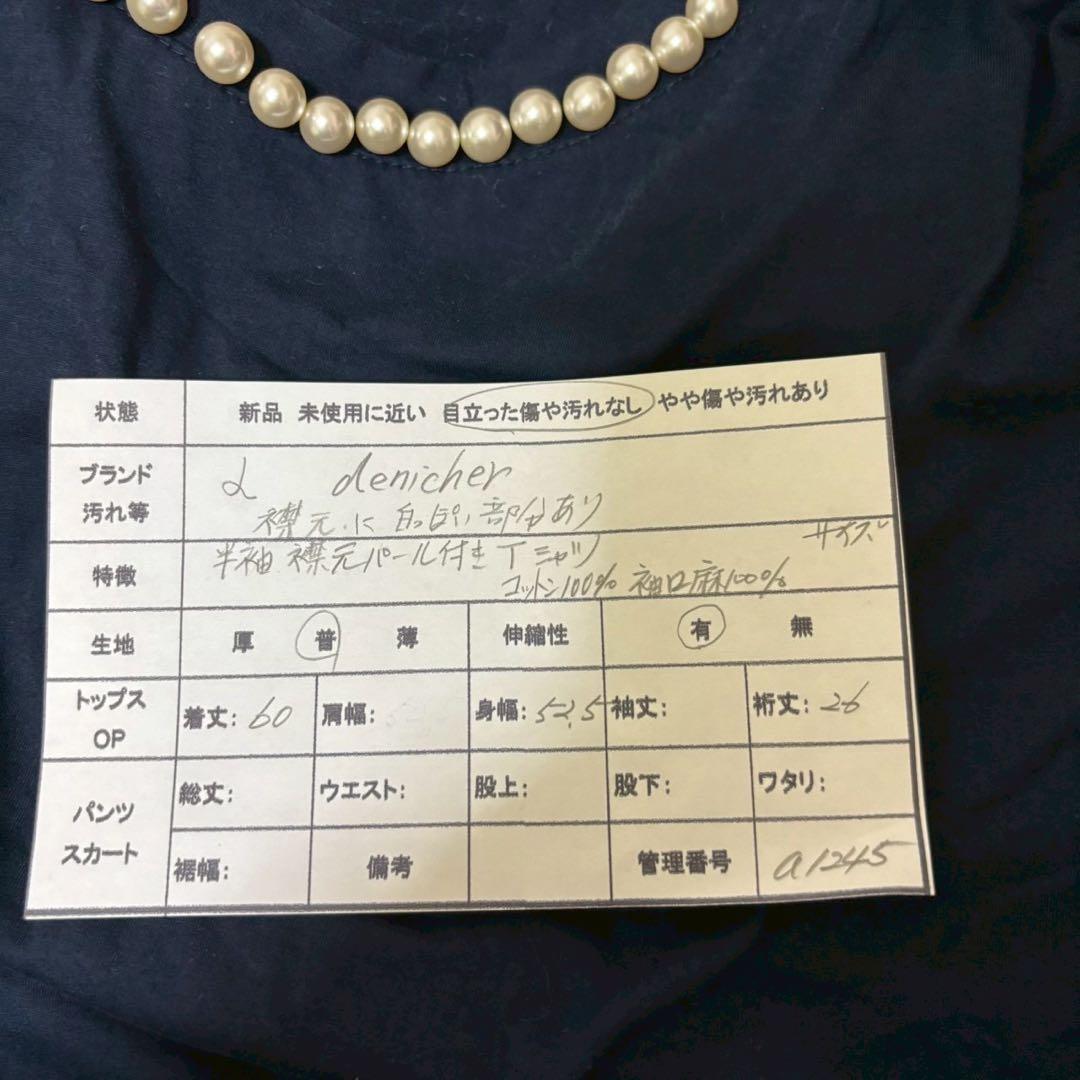 状態 新品 未使用に近い 目立った傷や汚れなし やや傷や汚れあり
ブランド 汚れ等 d denicher
襟元に白っぽい部分あり
特徴 半袖 襟元パール付きTシャツ サイズ
コットン100% 袖口麻100%
生地 厚 普 薄 伸縮性 有 無
トップス OP 着丈:60 肩幅: 身幅:52,5 袖丈: 裄丈:26
パンツ スカート 総丈: ウエスト: 股上: 股下: ワタリ:
裾幅: 備考 管理番号 a1245